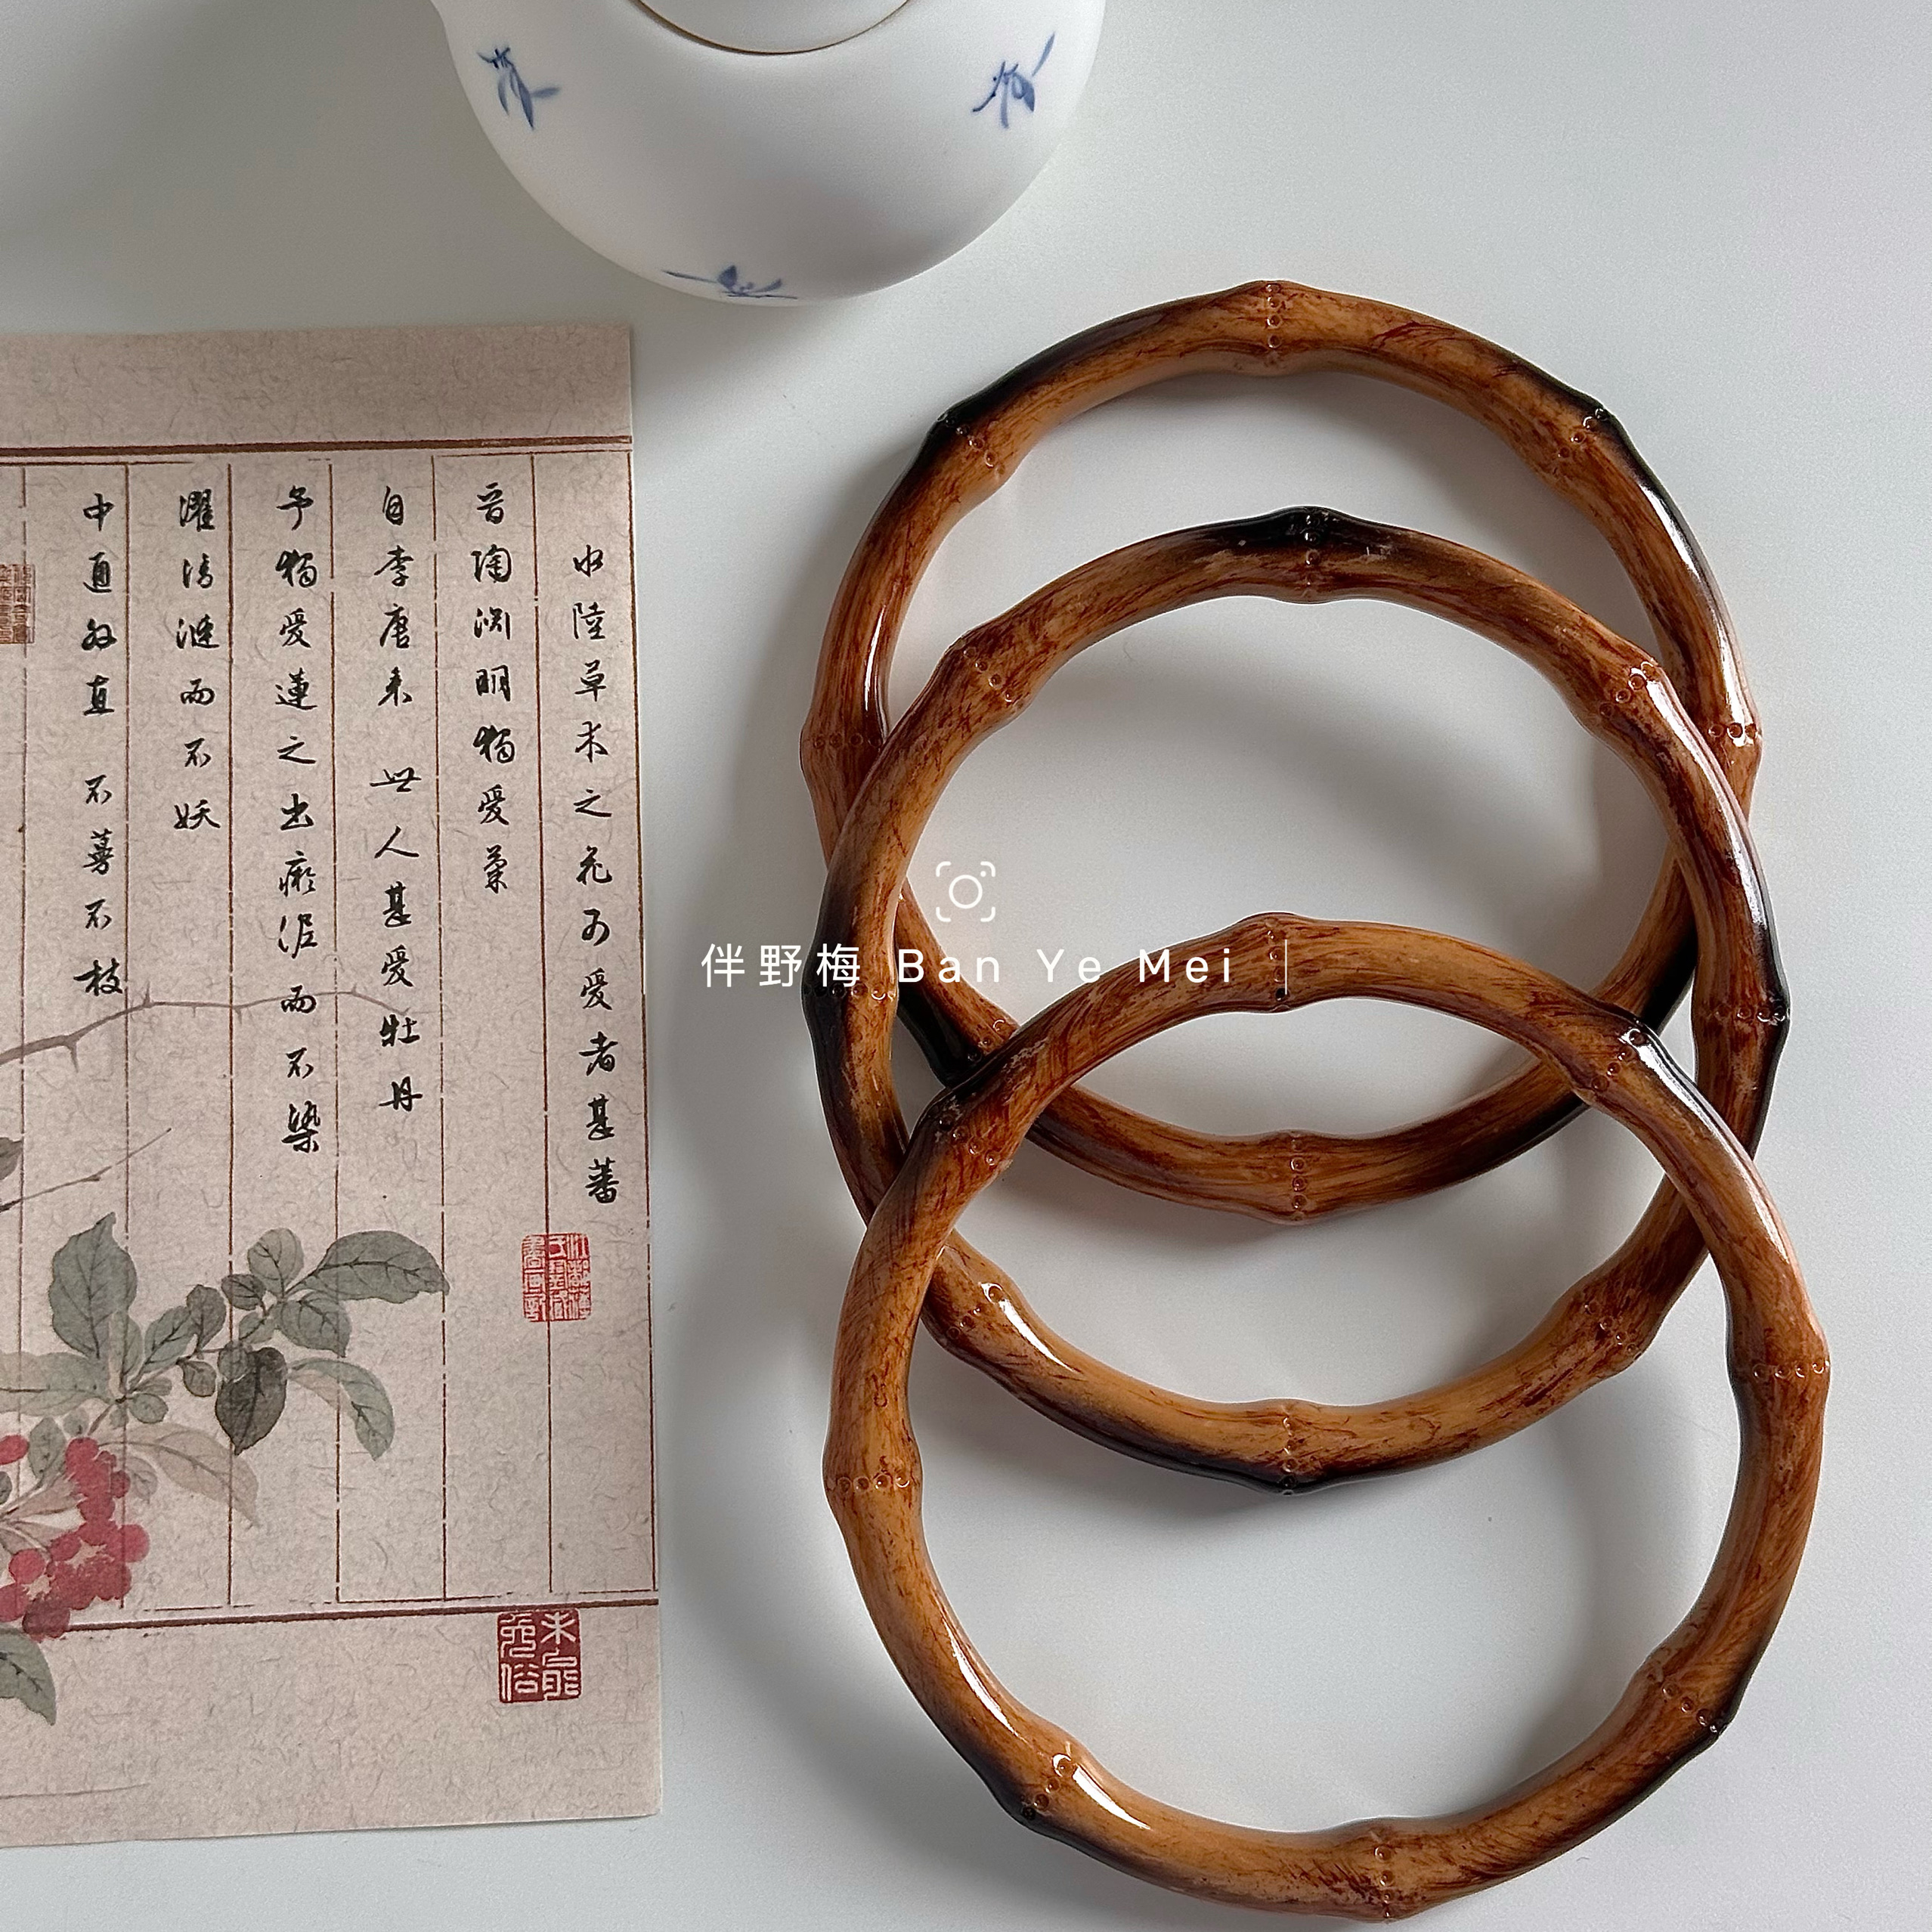 水陸草木之花可爱者甚蕃
晋陶渊明獨爱菊
自李唐来世人甚爱牡丹
予獨爱蓮之出淤泥而不染
濯清漣而不妖
中通外直不蔓不枝
未能免俗
伴野梅 Ban Ye Mei